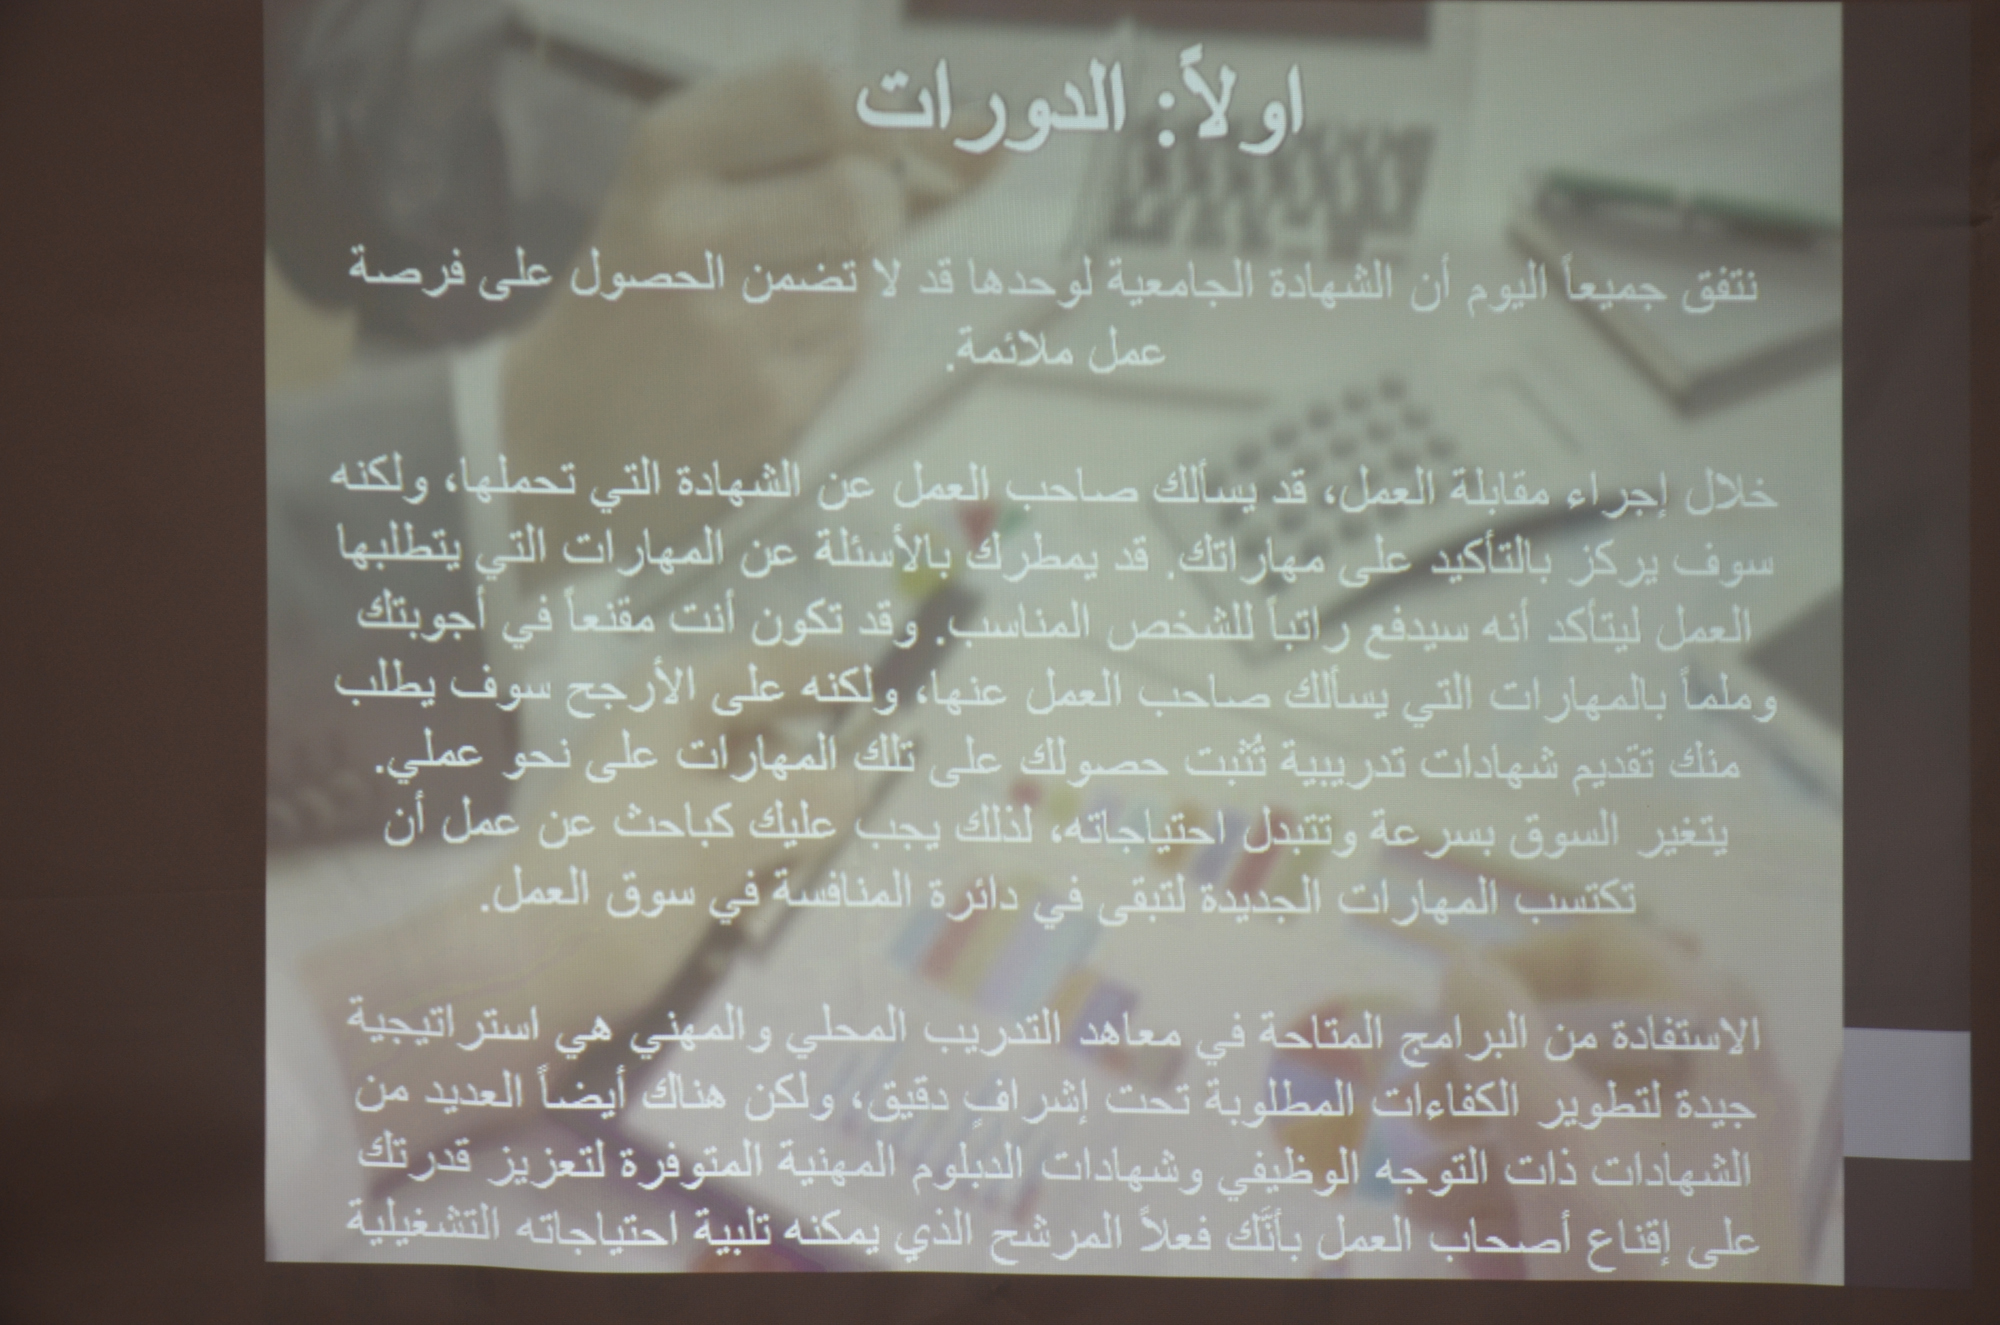 اولاً: الدورات
نتفق جميعاً اليوم أن الشهادة الجامعية لوحدها قد لا تضمن الحصول على فرصة
عمل ملائمة.
خلال إجراء مقابلة العمل، قد يسألك صاحب العمل عن الشهادة التي تحملها، ولكنه
سوف يركز بالتأكيد على مهاراتك. قد يمطرك بالأسئلة عن المهارات التي يتطلبها
العمل ليتأكد أنه سيدفع راتباً للشخص المناسب. وقد تكون أنت مقنعاً في أجوبتك
وملماً بالمهارات التي يسألك صاحب العمل عنها، ولكنه على الأرجح سوف يطلب
منك تقديم شهادات تدريبية تُثبت حصولك على تلك المهارات على نحو عملي.
يتغير السوق بسرعة وتتبدل احتياجاته، لذلك يجب عليك كباحث عن عمل أن
تكتسب المهارات الجديدة لتبقى في دائرة المنافسة في سوق العمل.
الاستفادة من البرامج المتاحة في معاهد التدريب المحلي والمهني هي استراتيجية
جيدة لتطوير الكفاءات المطلوبة تحت إشرافٍ دقيق، ولكن هناك أيضاً العديد من
الشهادات ذات التوجه الوظيفي وشهادات الدبلوم المهنية المتوفرة لتعزيز قدرتك
على إقناع أصحاب العمل بأنَّك فعلاً المرشح الذي يمكنه تلبية احتياجاته التشغيلية